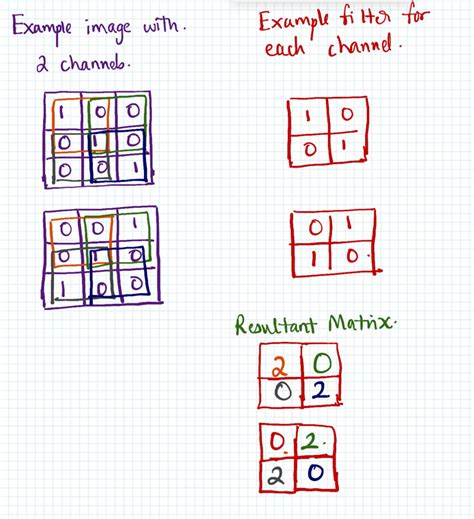 Example image with.
2 channels.
Example filter for
each channel.
1 0 0
0 1 0
0 0 1
1 0
0 1
0 0 1
0 1 0
1 0 0
0 1
1 0.
Resultant Matrix.
2 0
0 2
0. 2.
2 0